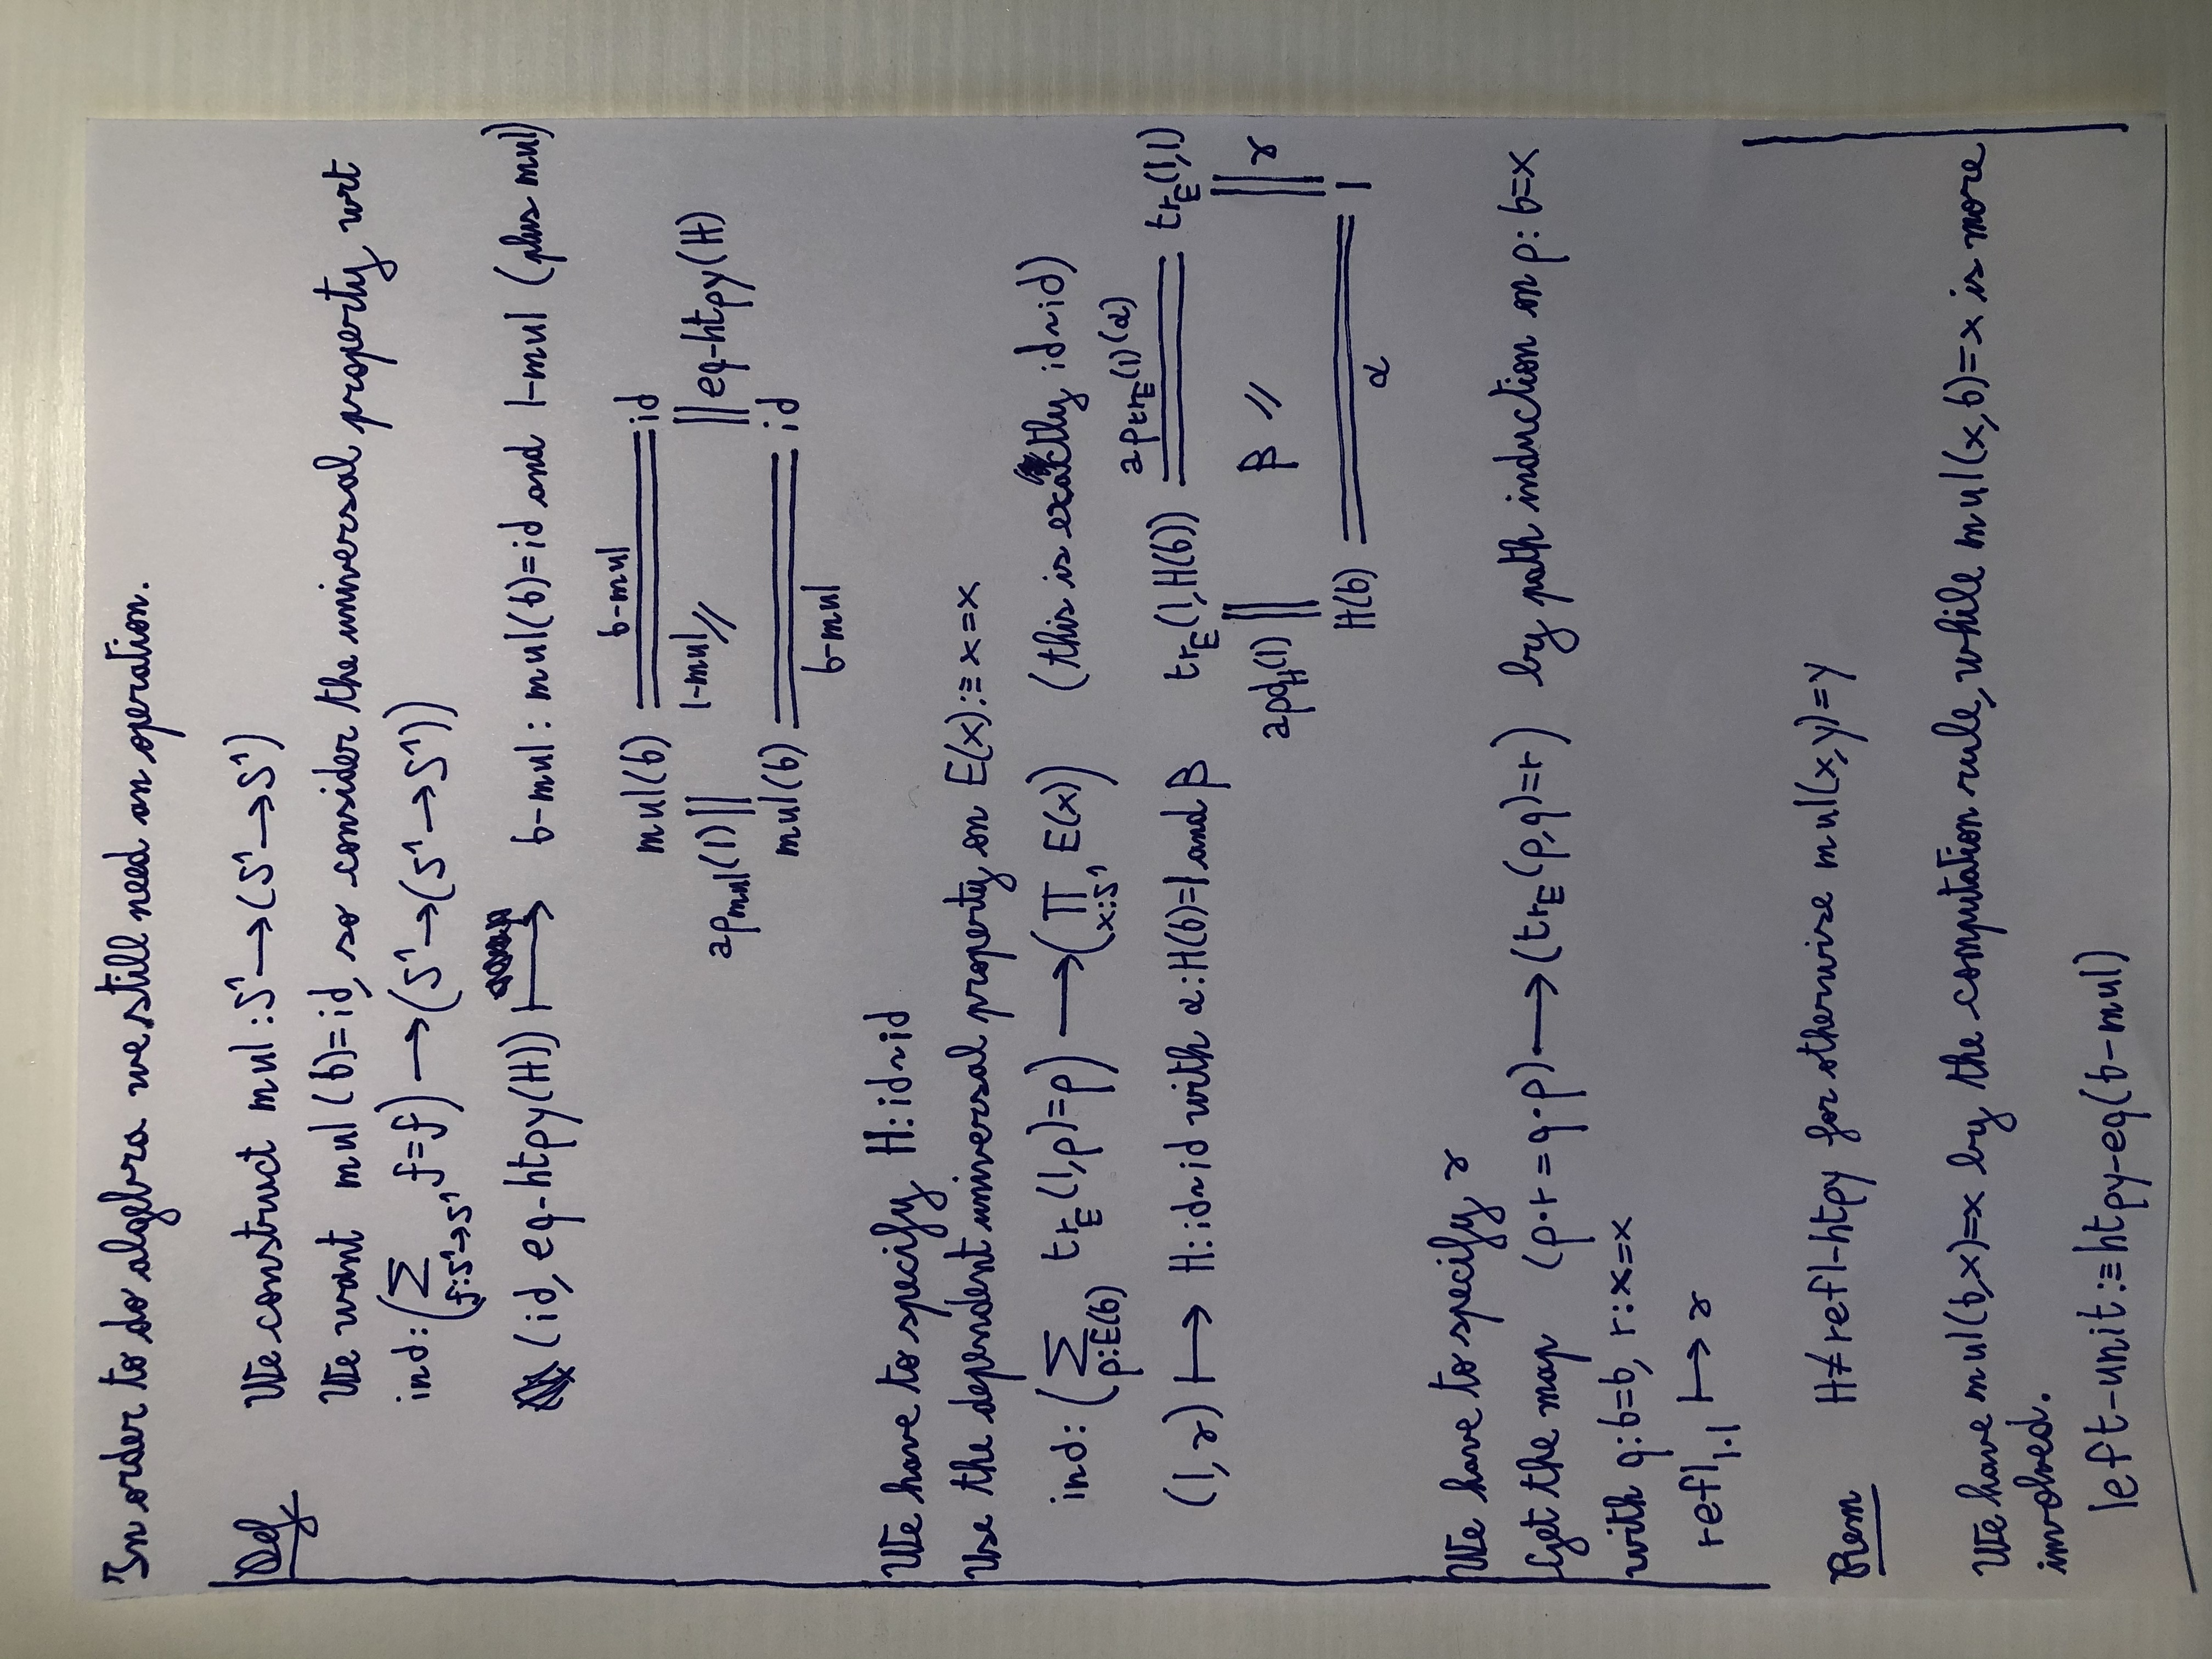 In order to do algebra we still need an operation.
Def We construct mul : S¹ → (S¹ → S¹)
We want mul(b)=id, so consider the universal property wrt
ind: (Σ_{f:S¹→S¹} f=f) → (S¹ → (S¹ → S¹))
(id, eq-htpy(H)) ⟼ b-mul : mul(b)=id and l-mul (plus mul)
b-mul
mul(b) ═ id
ap_mul(l) || l-mul // || eq-htpy(H)
mul(b) ═ id
b-mul
We have to specify H: id~id
Use the dependent universal property on E(x):≡ x=x
ind: (Σ_{p:E(b)} tr_E(l,p)=p) → (Π_{x:S¹} E(x)) (this is exactly id~id)
(l,γ) ⟼ H: id~id with α: H(b)=l and β
ap_{tr_E(l)}(α)
tr_E(l,H(b)) ═ tr_E(l,l)
apd_H(l) || β // || γ
H(b) ═ l
α
We have to specify γ
Get the map (p·r = q·p) → (tr_E(p,q)=r) by path induction on p: b=x
with q: b=b, r: x=x
refl_{l·l} ⟼ γ
Rem H≠refl-htpy for otherwise mul(x,y)=y
We have mul(b,x)=x by the computation rule, while mul(x,b)=x is more
involved.
left-unit:≡ htpy-eq(b-mul)